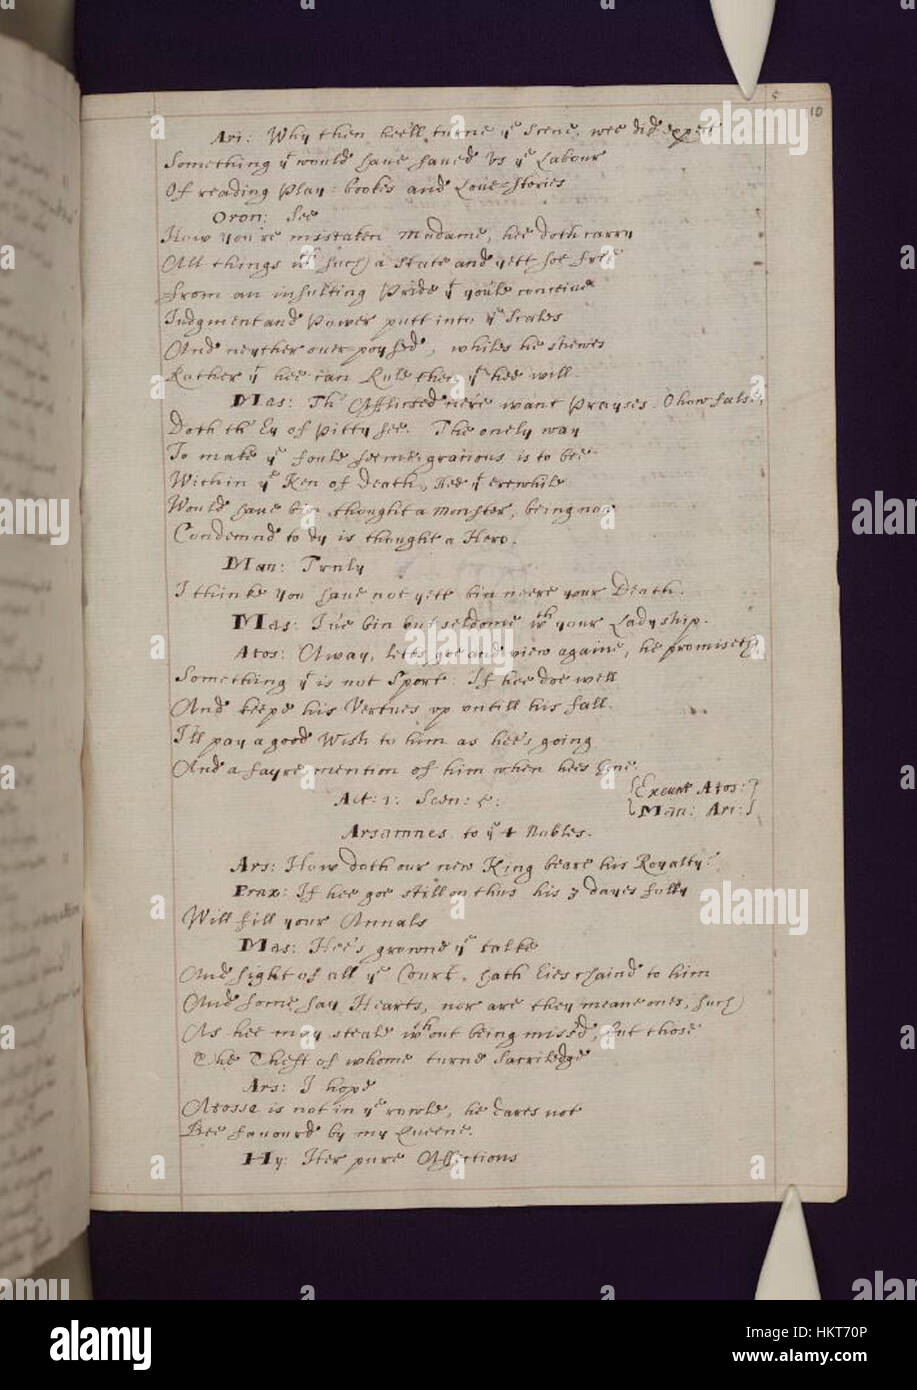 5
10
Ari: Why then hee'll turne yᵉ Scene, wee did expect
Something yᵗ would haue saued Vs yᵉ Labour
Of reading Play-bookes and Loue-stories
Oron: See
How you're misstaken Madame, hee doth carry
All things wᵗʰ such a state and yett soe free
From an insulting Pride yᵗ you'le conceiue
Iudgment and Power putt into yᵉ Scales
And neyther ouer-poysed, whiles he shewes
Rather yᵗ hee can Rule then yᵗ hee will.
Mas: Th' Afflicted ne're want Prayses. O how false
Doth th' Ey of Pitty see. The onely way
To make yᵉ foule seeme gratious is to bee
Within yᵉ Ken of Death, Hee yᵗ erewhile
Would haue bin thought a Monster, being now
Condemnd to dy is thought a Hero.
Man: Truly
I thinke you haue not yett bin neere your Death.
Mas: I'ue bin but seldome wᵗʰ your Ladyship.
Atos: Away, lets goe and view againe, he promiseth
Something yᵗ is not Sport: If hee doe well
And keepe his Vertues vp vntill his fall.
I'll pay a good Wish to him as hee's going
And a fayre mention of him when hees Gone.
{Exeunt Atos:}
Act: 1: Scen: 5:
{Man: Ari:}
Arsamnes to yᵉ 4 Nobles.
Ars: How doth our new King beare his Royalty?
Prax: If hee goe still on thus his 3 dayes fully
Will fill your Annals
Mas: Hee's growne yᵉ talke
And sight of all yᵉ Court, hath Eies chaind to him
And some say Hearts, nor are they meane ones, such
As hee may steale wᵗʰout being miss'd, but those
The Theft of whome turns Sacriledge
Ars: I hope
Atossa is not in yᵉ rowle, he dares not
Bee fauourd by my Queene.
Hy: Her pure Affections
alamy
Image ID: HKT70P
www.alamy.com